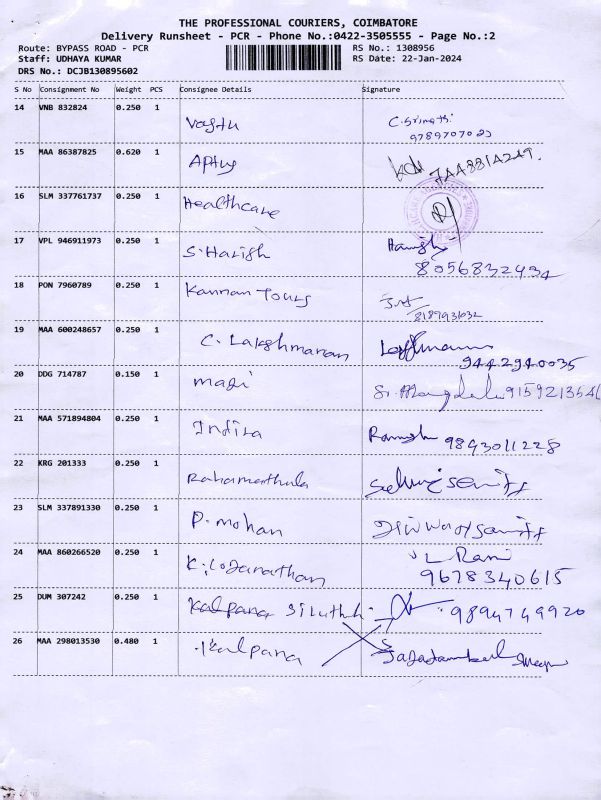 THE PROFESSIONAL COURIERS, COIMBATORE
Delivery Runsheet - PCR - Phone No.:0422-3505555 - Page No.:2
Route: BYPASS ROAD - PCR RS No.: 1308956
Staff: UDHAYA KUMAR RS Date: 22-Jan-2024
DRS No.: DCJB130895602
S No Consignment No Weight PCS Consignee Details Signature
14 VNB 832824 0.250 1 Vastu C. Srimathi
9789707023
15 MAA 86387825 0.620 1
16 SLM 337761737 0.250 1 Healthcare
17 VPL 946911973 0.250 1 S. Harish Harish
8056832494
18 PON 7960789 0.250 1 Kannan Tours
19 MAA 600248657 0.250 1 C. Lakshmanan
9442940035
20 DDG 714787 0.150 1 magi
21 MAA 571894804 0.250 1 Indira Ramesh 9893011228
22 KRG 201333 0.250 1
23 SLM 337891330 0.250 1 P. mohan
24 MAA 860266520 0.250 1 L Rani
9678340615
25 DUM 307242 0.250 1 Kalpana 9894749920
26 MAA 298013530 0.480 1 Kalpana